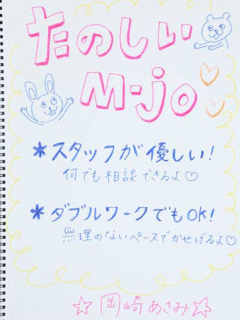 たのしい
M-jo♡
*スタッフが優しい!
何でも相談できるよ♡
*ダブルワークでもOK!
無理のないペースでかせげるよ♡
☆岡崎あさみ☆